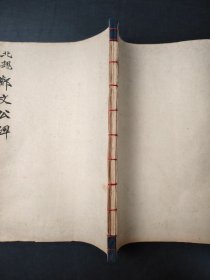 北魏鄭文公碑